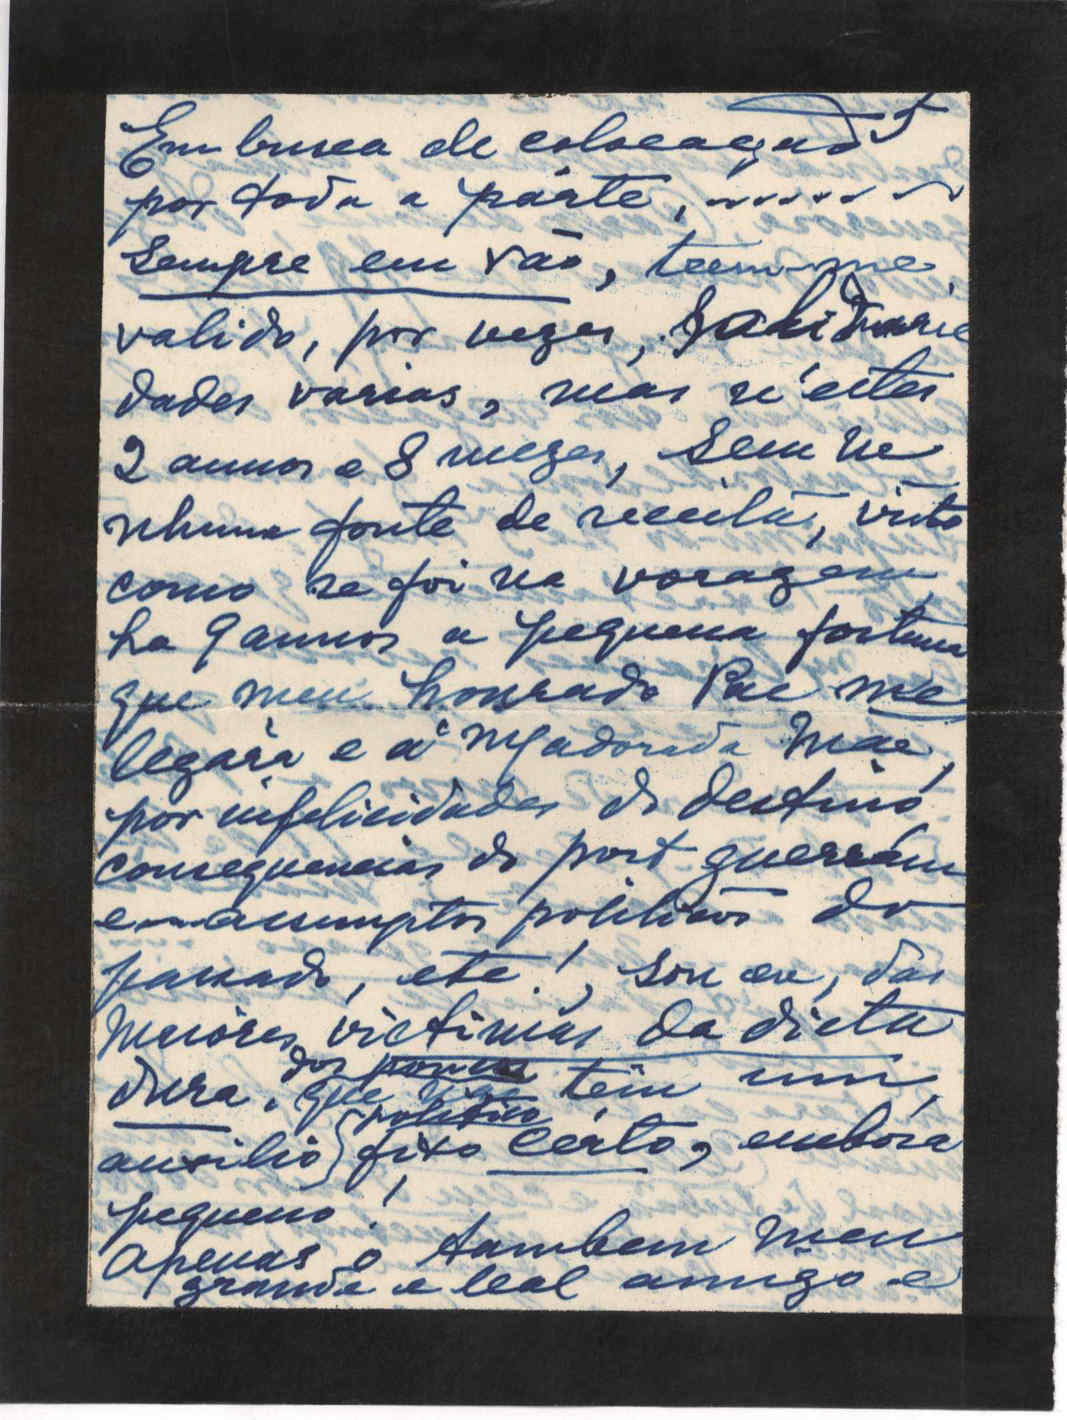 Em busca de colocação
por toda a párte,
sempre em vão, teem-me
valido, por vezes,
dades varias, mas n'estes
2 annos e 8 mezes, sem ne
nhuma fonte de receita, visto
como se foi na voragem
ha 9 annos a pequena fortuna
que meu honrado Pae me
legára e á Mãe,
por infelicidades do destino
consequencias do post guerra
em assumptos politicos do
passado, etc.!, sou eu, das
maióres victimas da dicta
dura. que têm um
dos poucos
politico
auxilio fixo certo, embóra
pequeno!
Apenas o tambem meu
grande e leal amigo e